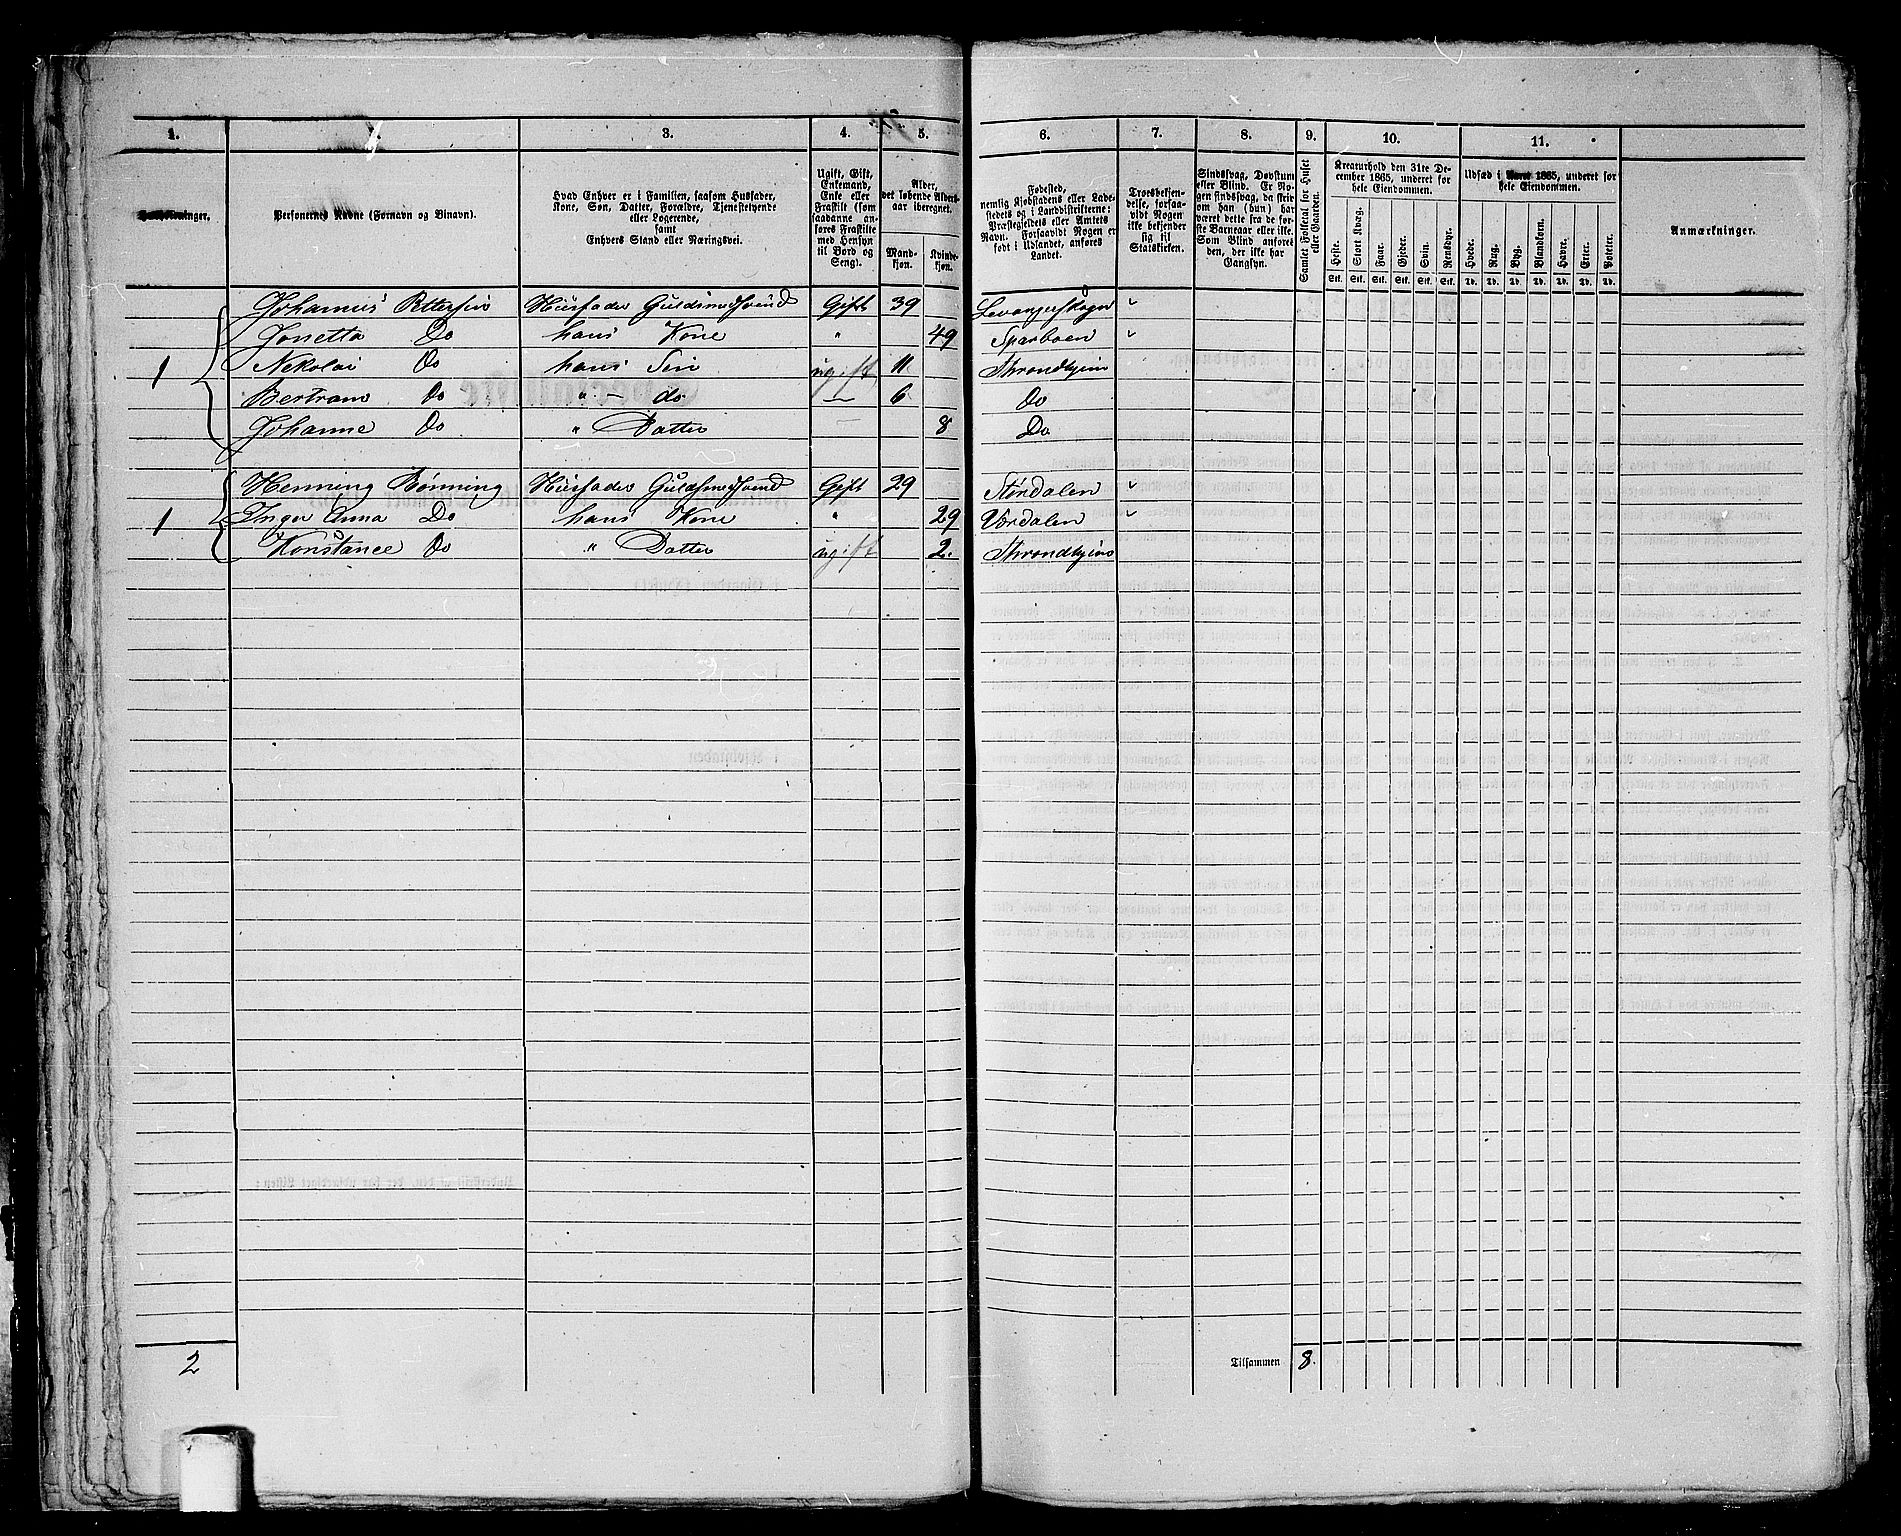 1. 3. 4. 5. 6. 7. 8. 9. 10. 11.
Personernes Navne (Fornavn og Binavn).
Hvad Enhver er i Familien, saasom Husfader,
Kone, Søn, Datter, Forældre, Tjenestetyende
eller Logerende,
samt
Enhvers Stand eller Næringsvei.
Ugift, Gift,
Enkemand,
Enke eller
Fraskilt (som
saadanne an-
føres Fraskilte
med Hensyn
til Bord og
Seng).
Alder,
det løbende Alders-
aar iberegnet.
Mand-
kjøn.
Kvinde-
kjøn.
Fødested,
nemlig Kjøbstadens eller Lade-
stedets og i Landdistrikterne:
Præstegjeldets eller Amtets
Navn. Forsaavidt Nogen er
født i Udlandet, anføres
Landet.
Troesbekjen-
delse, forsaa-
vidt Nogen
ikke bekjender
sig til
Statskirken.
Sindssvag, Døvstum
eller Blind. Er No-
gen sindssvag, da skri-
ves om han (hun) har
været dette fra de før-
ste Barneaar eller ikke.
Som Blind anføres
den, der ikke har
Gangsyn.
Samlet Folketal for Huset
eller Gaarden.
Kreaturhold den 31te De-
cember 1865, underet for
hele Eiendommen.
Heste. Stort Kvæg. Faar. Gjeder. Svin. Rensdyr.
Stk. Stk. Stk. Stk. Stk. Stk.
Udsæd i Aaret 1865, underet for
hele Eiendommen.
Hvede. Rug. Byg. Blandkorn. Havre. Erter. Poteter.
Td. Td. Td. Td. Td. Td. Td.
Anmærkninger.
Johannes Pettersen Huusfader Guldsmedsvend Gift 39 Levangerskogn "
Jonetta Do hans Kone " 49 Sparboen "
1 Nekolai Do hans Søn ugift 11 Throndhjem
Bertram Do " - do. — 6 Do
Johanne Do " Datter — 8 Do
Henning Rønning Huusfader Guldsmedsvend Gift 29 Størdalen "
1 Inger Anna Do hans Kone " 29 Værdalen "
Konstance Do " Datter ugift 2. Throndhjem
2
Tilsammen 8.